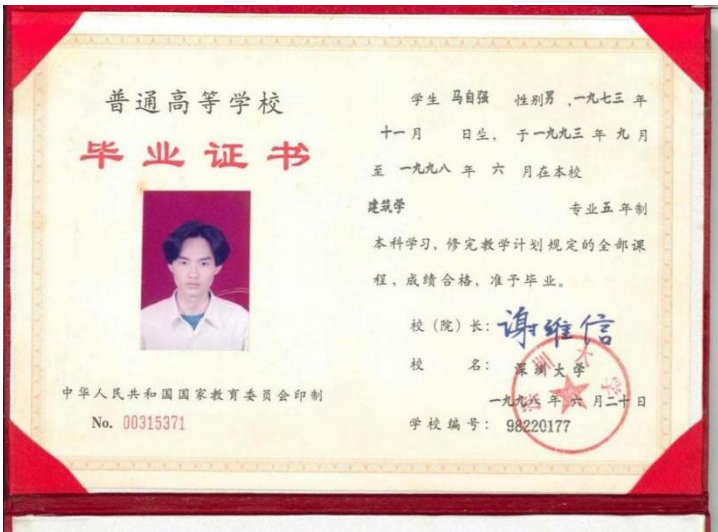 普通高等学校
毕业证书
中华人民共和国国家教育委员会印制
No. 00315371
学生 马自强 性别男，一九七三 年
十一月 日生，于一九九三 年 九 月
至 一九九八 年 六 月在本校
建筑学 专业五 年制
本科学习，修完教学计划规定的全部课
程，成绩合格，准予毕业。
校（院）长：谢维信
校 名：深圳大学
一九九八 年 六 月二十日
学校编号：98220177
深圳大学